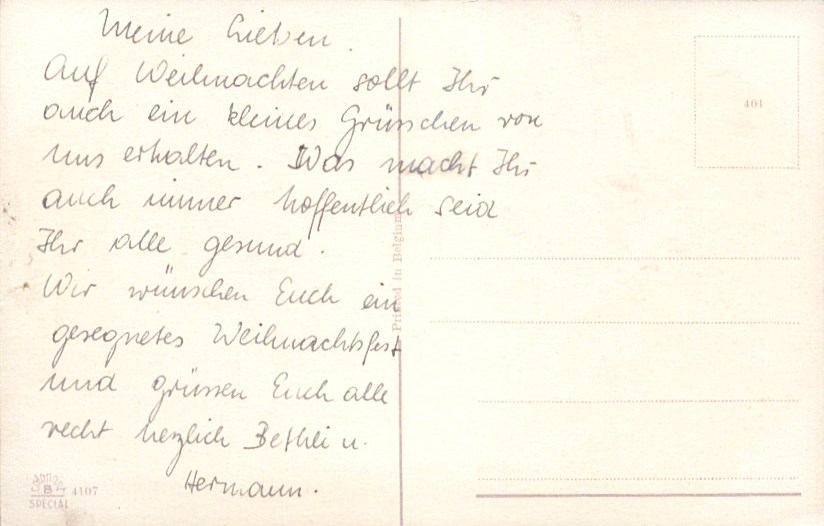 Meine Lieben.
Auf Weihnachten sollt Ihr
auch ein kleines Grüsschen von
uns erhalten. Was macht Ihr
auch immer hoffentlich seid
Ihr alle gesund.
Wir wünschen Euch ein
gesegnetes Weihnachtsfest
und grüssen Euch alle
recht herzlich Bethli u.
Hermann.
401
Printed in Belgium
B
4107
SPECIAL